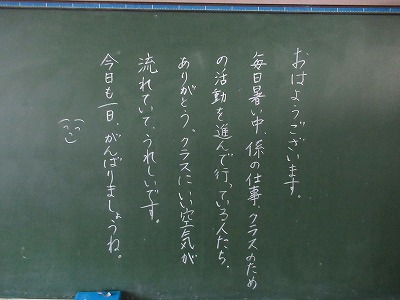 おはようございます。
毎日暑い中、係の仕事、クラスのため
の活動を進んで行っている人たち、
ありがとう。クラスにいい空気が
流れていて、うれしいです。
今日も一日、がんばりましょうね。